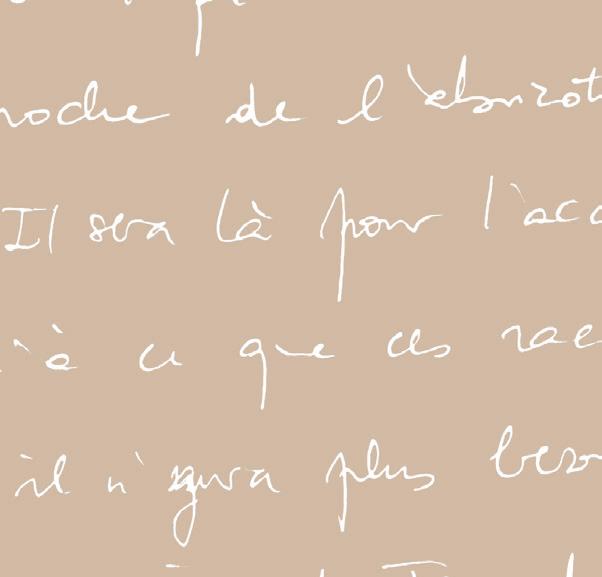 roche de l'
Il sera là pour l'acc
'à ce que ces rac
il n'aura plus beso